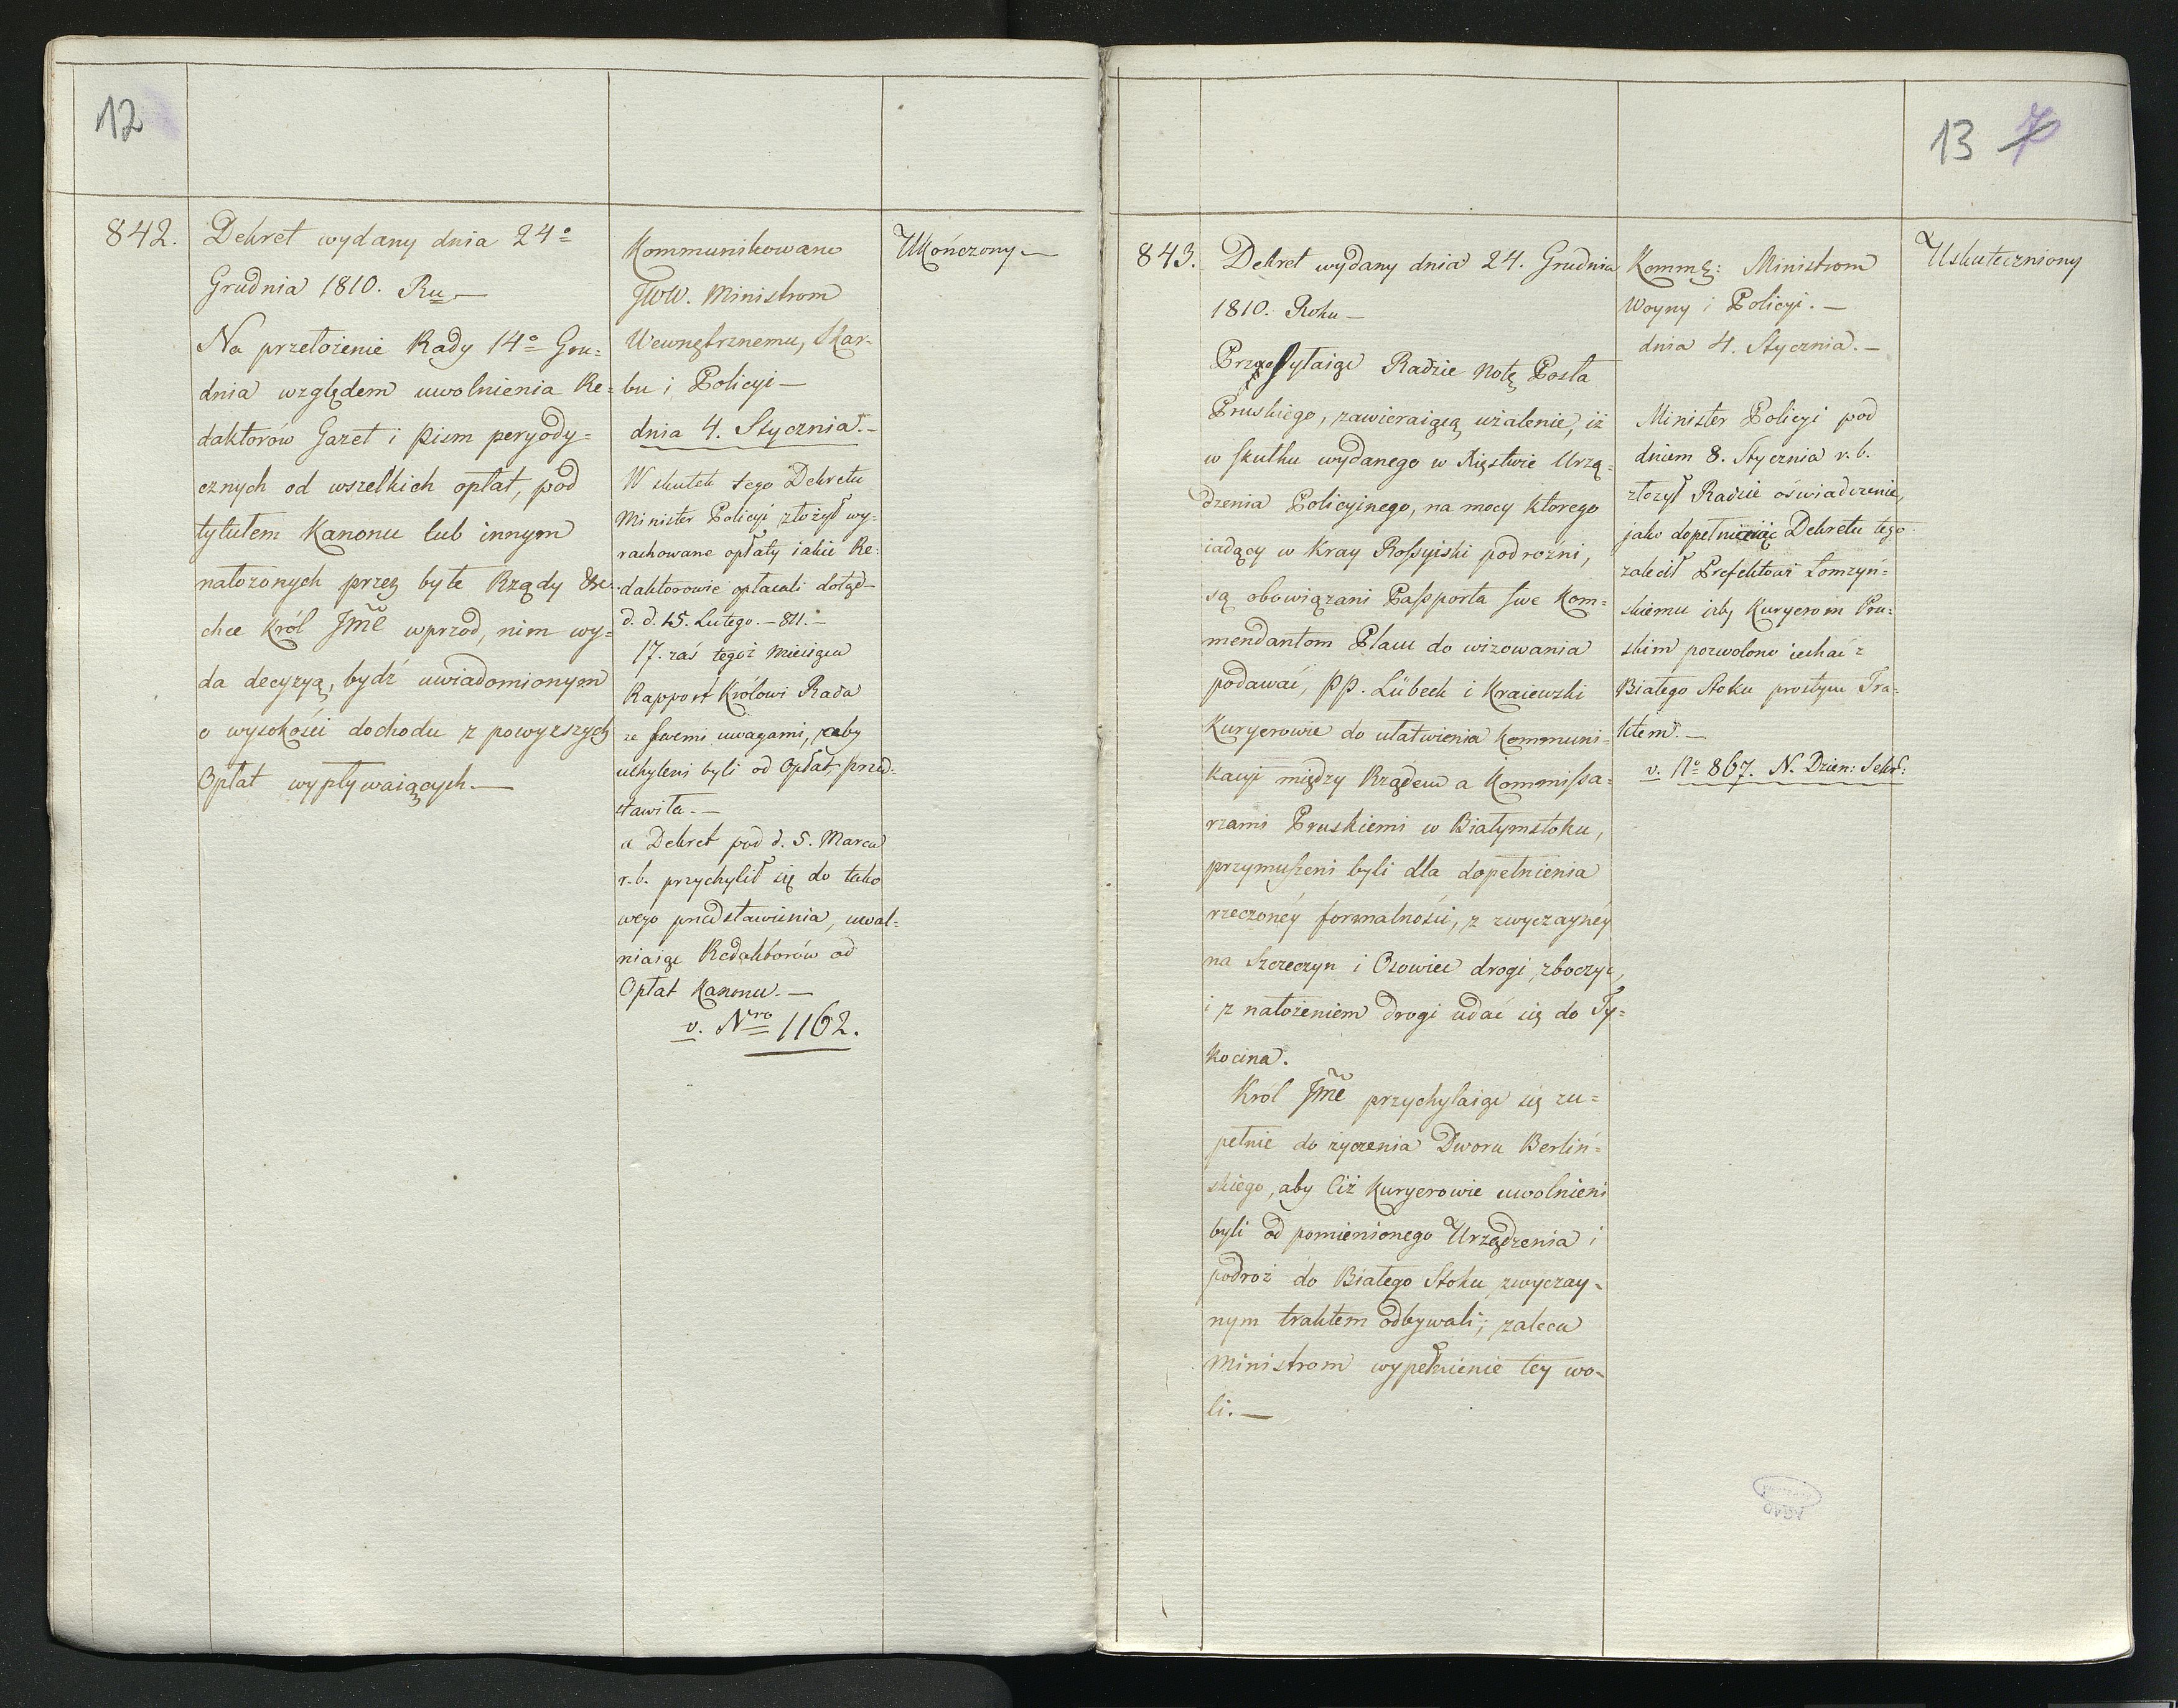 12
842.
Dekret wydany dnia 24º
Grudnia 1810. Ru —
Na przełożenie Rady 14º Gru=
dnia względem uwolnienia Re=
daktorów Gazet i pism peryody=
cznych od wszelkich opłat, pod
tytułem Kanonu lub innym
nałożonych przez byłe Rządy &c.
chce Król Jmć wprzod, nim wy=
da decyzyą, bydź uwiadomionym
o wysokości dochodu z powyższych
Opłat wypływaiących. —
Kommunikowano
JWW. Ministrom
Wewnętrznemu, Skar=
bu i Policyi —
dnia 4. Stycznia. —
W skutek tego Dekretu
Minister Policyi złożył wy=
rachowane opłaty iakie Re=
daktorowie opłacali dotąd —
d. d. 15. Lutego. — 811. —
17. zaś tegoż Miesiąca
Rapport Królowi Rada
ze swemi uwagami, żeby
uchyleni byli od Opłat przed=
stawiła. —
a Dekret pod d. 5. Marca
r. b. przychylił się do tako
wego przedstawienia, uwal=
niaiąc Redaktorów od
Opłat Kanonu. —
v. Nro 1162.
Ukończony —
13 7
843.
Dekret wydany dnia 24. Grudnia
1810. Roku —
Przesyłaiąc Radzie Notę Posła
Pruskiego, zawieraiącą użalenie, iż
w skutku wydanego w Xięstwie Urzą=
dzenia Policyinego, na mocy ktorego
iadący w Kray Rossyiski podrożni,
są obowiązani Passporta swe Kom=
mendantom Placu do wizowania
podawać, PP. Lübeck i Kraiewski
Kuryerowie do ułatwienia Kommuni=
kacyi między Rządem a Kommissa=
rzami Pruskiemi w Białymstoku,
przymuszeni byli dla dopełnienia
rzeczonéy formalności, z zwyczaynéy
na Szczeczyn i Osowiec drogi zboczyć,
i z nałożeniem drogi udać się do Ty=
kocina.
Król Jmć przychylaiąc się zu=
pełnie do życzenia Dworu Berliń=
skiego, aby Ciż Kuryerowie uwolnieni
byli od pomienionego Urządzenia i
podroż do Białego Stoku zwyczay=
nym traktem odbywali; zaleca
Ministrom wypełnienie tey wo=
li. —
Kommg: Ministrom
Woyny i Policyi. —
dnia 4. Stycznia. —
Minister Policyi pod
dniem 8. Stycznia r. b.
złożył Radzie oświadczenie,
jako dopełniaiąc Dekretu tego
zalecił Prefektowi Łomżyń=
skiemu iżby Kuryerom Pru=
skim pozwolono iechać z
Białego Stoku prostym Tra=
ktem. —
v. Nº 867. N. Dzien: Sekr:
Uskuteczniony
AGAD